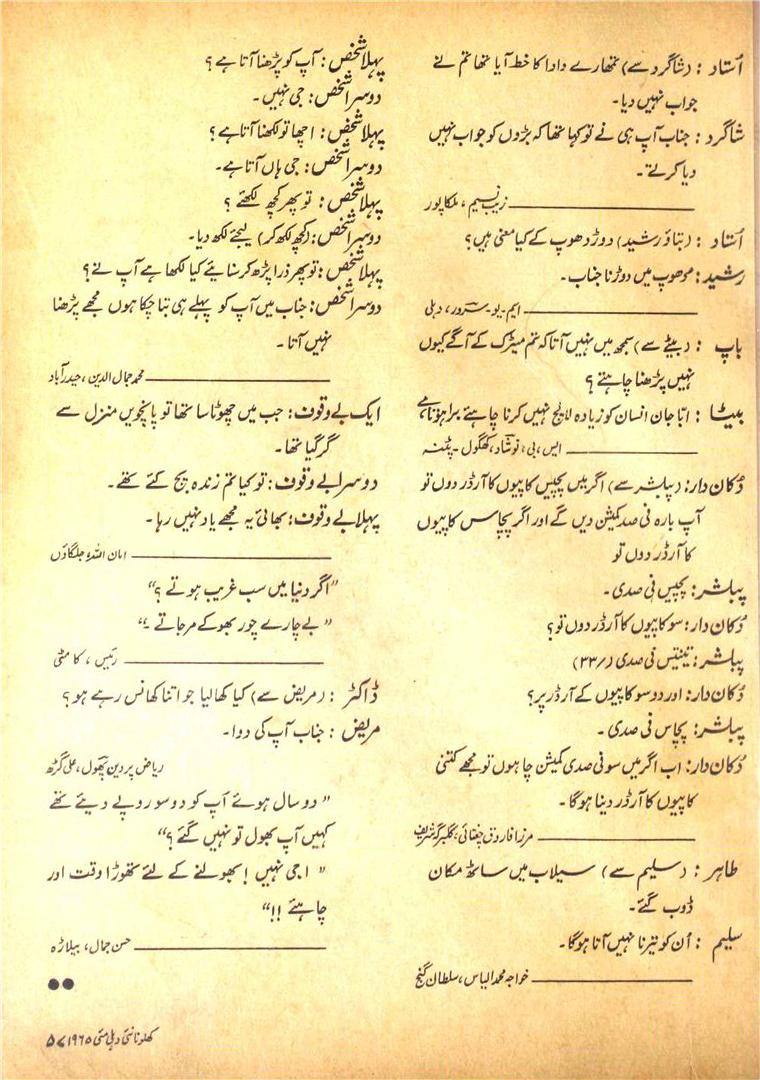 اُستاد : (شاگرد سے) تمھارے دادا کا خط آیا تھا تم نے
جواب نہیں دیا۔
شاگرد : جناب آپ ہی نے تو کہا تھا کہ بڑوں کو جواب نہیں
دیا کرتے۔
زیب نسیم، ملکاپور
اُستاد : (بتاؤ رشید) دوڑ دھوپ کے کیا معنی ہیں؟
رشید : دھوپ میں دوڑنا جناب۔
ایم۔یو۔سرور، دہلی
باپ : (بیٹے سے) سمجھ میں نہیں آتا کہ تم میٹرک کے آگے کیوں
نہیں پڑھنا چاہتے؟
بیٹا : ابّا جان انسان کو زیادہ لالچ نہیں کرنا چاہئے برا ہوتا ہے
ایس، بی، نوشاد، کھگول۔ پٹنہ
دُکان دار: (پبلشر سے) اگر میں پچیس کاپیوں کا آرڈر دوں تو
آپ بارہ فی صد کمیشن دیں گے اور اگر پچاس کاپیوں
کا آرڈر دوں تو
پبلشر: پچیس فی صدی۔
دُکان دار: سو کاپیوں کا آرڈر دوں تو؟
پبلشر: تینتیس فی صدی (۳۳٪)
دُکان دار: اور دو سو کاپیوں کے آرڈر پر؟
پبلشر: پچاس فی صدی۔
دُکان دار: اب اگر میں سو فی صدی کمیشن چاہوں تو مجھے کتنی
کاپیوں کا آرڈر دینا ہوگا۔
مرزا فاروق چغتائی، گلبرگہ شریف
طاہر : (سلیم سے) سیلاب میں ساٹھ مکان
ڈوب گئے۔
سلیم : اُن کو تیرنا نہیں آتا ہوگا۔
خواجہ محمد الیاس، سلطان گنج
پہلا شخص: آپ کو پڑھنا آتا ہے؟
دوسرا شخص: جی نہیں۔
پہلا شخص: اچھا تو لکھنا آتا ہے؟
دوسرا شخص: جی ہاں آتا ہے۔
پہلا شخص: تو پھر کچھ لکھئے؟
دوسرا شخص: (کچھ لکھ کر) لیجئے لکھ دیا۔
پہلا شخص: تو پھر ذرا پڑھ کر سنایئے کیا لکھا ہے آپ نے؟
دوسرا شخص: جناب میں آپ کو پہلے ہی بتا چکا ہوں مجھے پڑھنا
نہیں آتا۔
محمد جمال الدین، حیدرآباد
ایک بے وقوف: جب میں چھوٹا سا تھا تو پانچویں منزل سے
گر گیا تھا۔
دوسرا بے وقوف: تو کیا تم زندہ بچ گئے تھے۔
پہلا بے وقوف: بھائی یہ مجھے یاد نہیں رہا۔
امان اللہ، جلگاؤں
”اگر دنیا میں سب غریب ہوتے؟“
”بے چارے چور بھوکے مر جاتے۔“
رئیس، کامٹی
ڈاکٹر : (مریض سے) کیا کھا لیا جو اتنا کھانس رہے ہو؟
مریض : جناب آپ کی دوا۔
ریاض پروین پھول، علی گڑھ
”دو سال ہوئے آپ کو دو سو روپے دیئے تھے
کہیں آپ بھول تو نہیں گئے؟“
”اجی نہیں! بھولنے کے لئے تھوڑا وقت اور
چاہئے!!“
حسن جمال، بیلاڑہ
کھلونا نئی دہلی مئی ۱۹۶۵ ۵۷